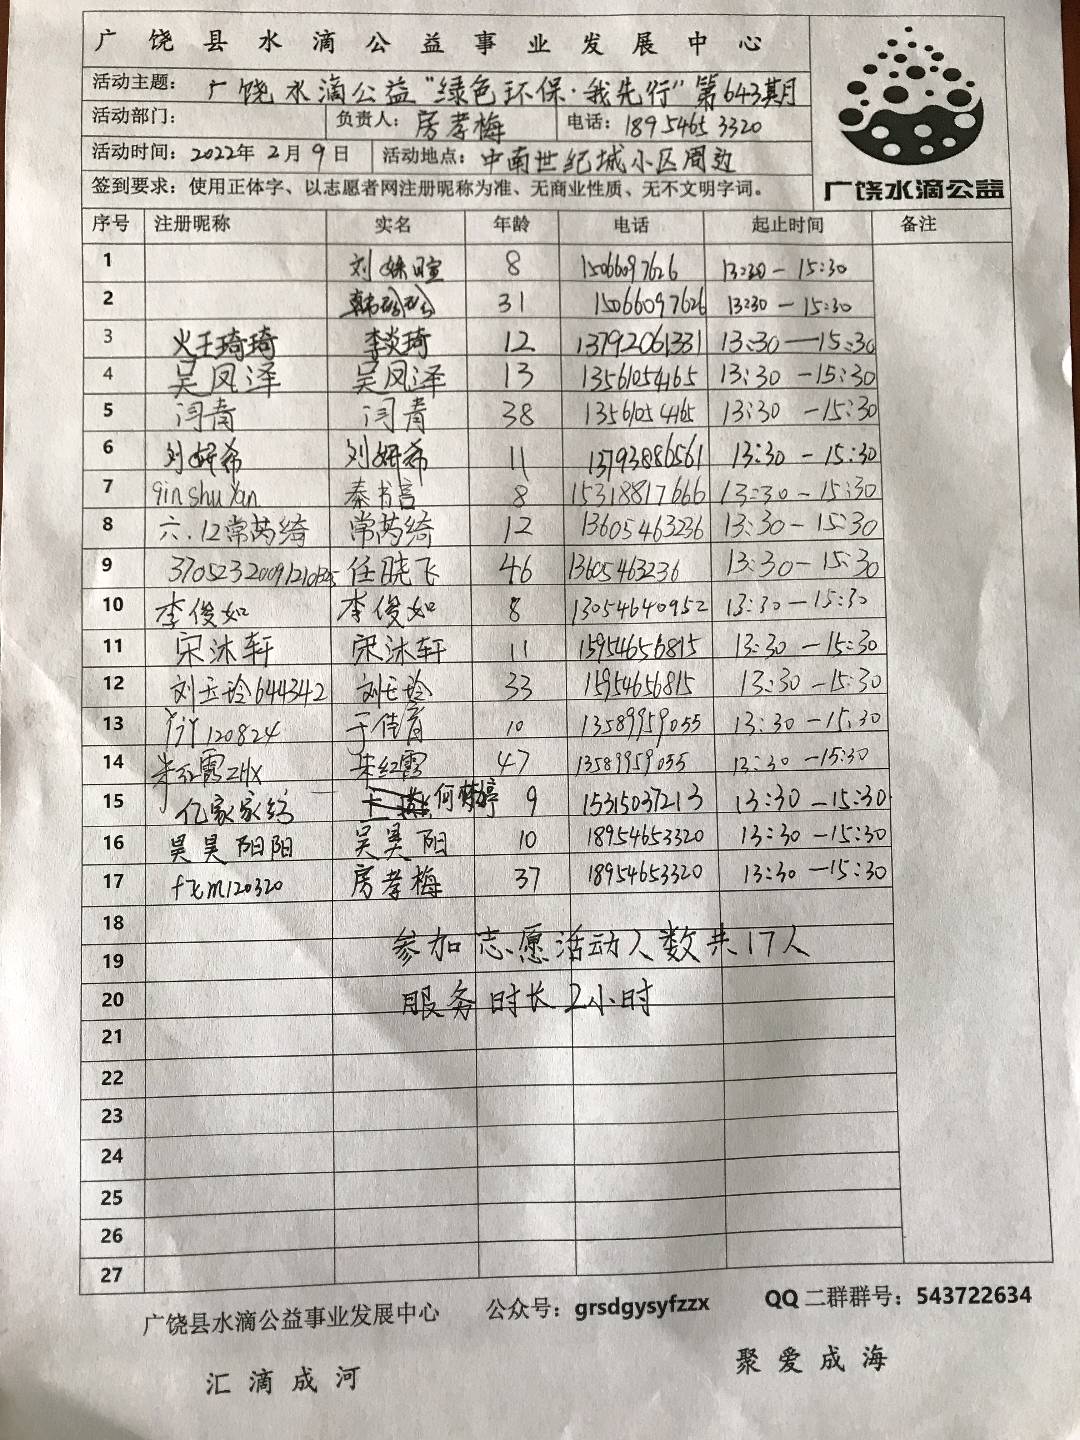 广饶县水滴公益事业发展中心
活动主题: 广饶水滴公益"绿色环保·我先行"第643期
广饶水滴公益
活动部门: 负责人: 房孝梅 电话: 18954653320
活动时间: 2022年2月9日 活动地点: 中南世纪城小区周边
签到要求: 使用正体字、以志愿者网注册昵称为准、无商业性质、无不文明字词。
序号 注册昵称 实名 年龄 电话 起止时间 备注
1 刘姝暄 8 15066097626 13:30-15:30
2 31 15066097626 13:30-15:30
3 火王琦琦 李炎琦 12 13792061331 13:30-15:30
4 吴凤泽 吴凤泽 13 13561054165 13:30-15:30
5 闫青 闫青 38 13561054165 13:30-15:30
6 刘妍希 刘妍希 11 13793886561 13:30-15:30
7 qinshuyan 秦书言 8 15318817666 13:30-15:30
8 六.12常芮绮 常芮绮 12 13605463236 13:30-15:30
9 任晓飞 46 13605463236 13:30-15:30
10 李俊如 李俊如 8 13054640952 13:30-15:30
11 宋沐轩 宋沐轩 11 15954656815 13:30-15:30
12 刘玉玲644342 刘玉玲 33 15954656815 13:30-15:30
13 于佳育 10 13589959055 13:30-15:30
14 朱红霞ZHX 朱红霞 47 13589959055 13:30-15:30
15 亿家家纺 何梦婷 9 15315037213 13:30-15:30
16 吴昊阳阳 吴昊阳 10 18954653320 13:30-15:30
17 fxm120320 房孝梅 37 18954653320 13:30-15:30
18
参加志愿活动人数共17人
19
20 服务时长2小时
21
22
23
24
25
26
27
广饶县水滴公益事业发展中心 公众号: grsdgysyfzzx QQ二群群号: 543722634
汇滴成河 聚爱成海